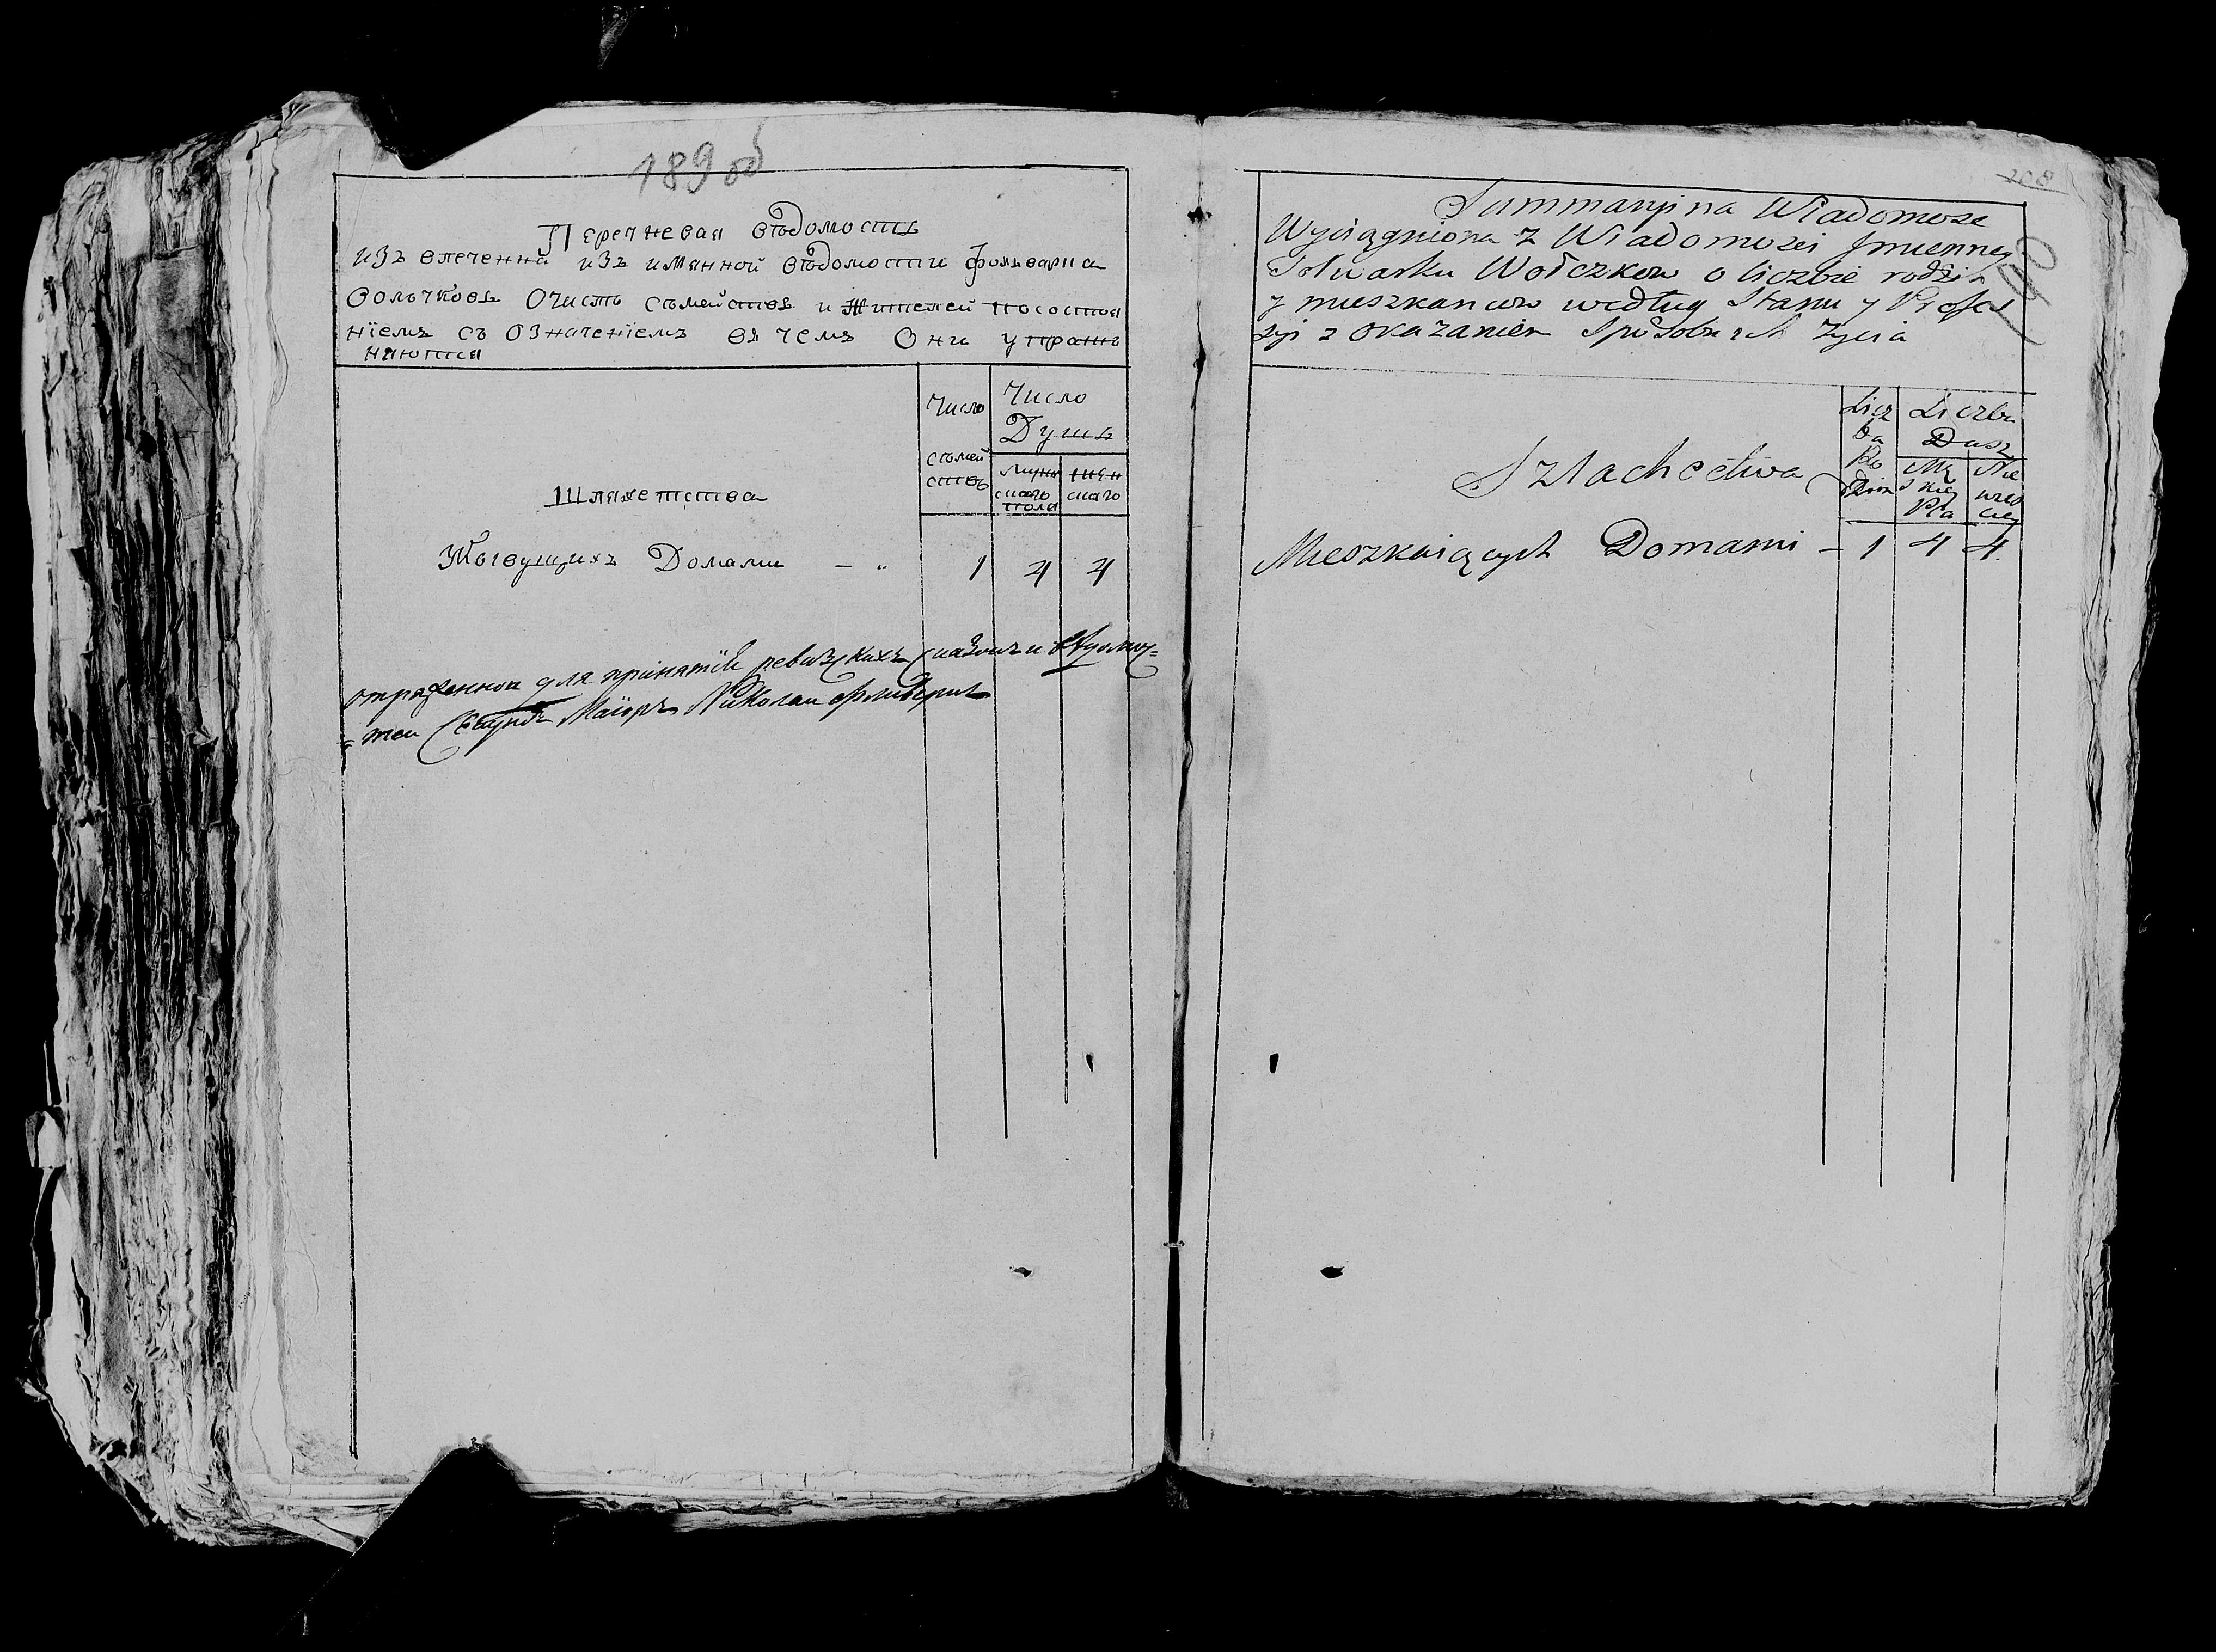 189 об
Перечневая вѣдомость
изъ влеченна изъ имянной вѣдомости фольварка
Волочковъ Очислѣ сѣмействъ и Жителей посостоя
нїемъ съ означенїемъ въ чемъ Они упраж
няются
Число
сѣмей
ствъ
Число
Душъ
мужс
скаго
пола
жен
скаго
Шляхетства
Жывущихъ Домами — „ 1 4 4
отряженной для принятїя ревизскихъ сказокъ и вѣдомос=
=тей Секундъ Маїоръ Николай
208
Summaryina Wiadomosc
Wyciągniona z Wiadomosci Jmienney
Folwarku Wołczkow o liczbie rodzin
y mieszkancow według Stanu y Profes
syi z okazaniem Sposobu ich życia
Licz
ba
Ro
dzin
Liczba
Dusz
Mę
skiey
Płci
Nie
wies
ciey
Szlachectwa
Mieszkaiących Domami – 1 4 4.